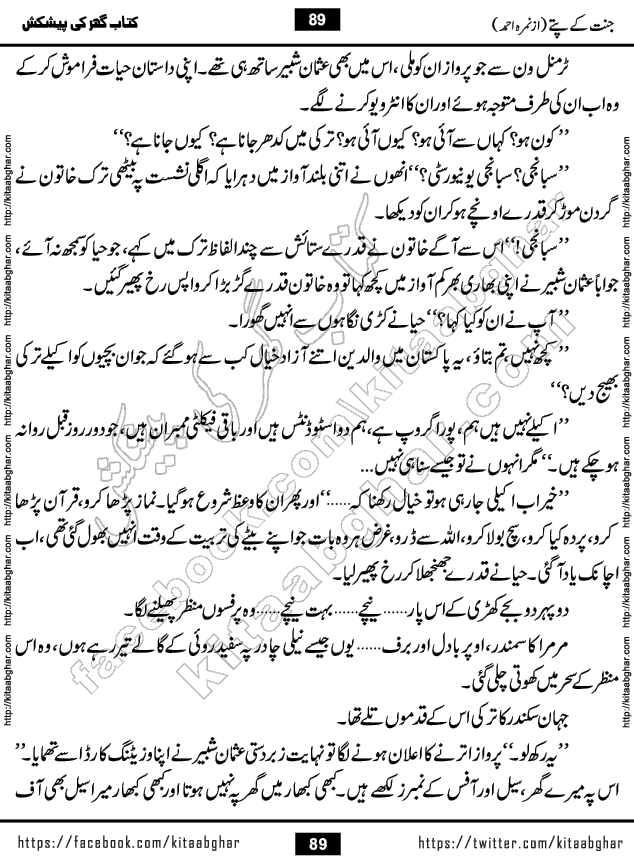 جنت کے پتے (از نمرہ احمد)
89
کتاب گھر کی پیشکش
ٹرمنل ون سے جو پرواز ان کو ملی، اس میں بھی عثمان شبیر ساتھ ہی تھے۔ اپنی داستان حیات فراموش کر کے
وہ اب ان کی طرف متوجہ ہوئے اور ان کا انٹرویو کرنے لگے۔
’’کون ہو؟ کہاں سے آئی ہو؟ کیوں آئی ہو؟ ترکی میں کدھر جانا ہے؟ کیوں جانا ہے؟‘‘
’’سبانجی؟ سبانجی یونیورسٹی؟‘‘ انھوں نے اتنی بلند آواز میں دہرایا کہ اگلی نشست پہ بیٹھی ترک خاتون نے
گردن موڑ کر قدرے اونچے ہو کر ان کو دیکھا۔
’’سبانجی!‘‘ اس سے آگے خاتون نے قدرے ستائش سے چند الفاظ ترک میں کہے، جو حیا کو سمجھ نہ آئے،
جواباً عثمان شبیر نے اپنی بھاری بھر کم آواز میں کچھ کہا تو وہ خاتون قدرے گڑبڑا کر واپس رخ پھیر گئیں۔
’’آپ نے ان کو کیا کہا؟‘‘ حیا نے کڑی نگاہوں سے انہیں گھورا۔
’’کچھ نہیں، تم بتاؤ، یہ پاکستان میں والدین اتنے آزاد خیال کب سے ہو گئے کہ جوان بچیوں کو اکیلے ترکی
بھیج دیں؟‘‘
’’اکیلے نہیں ہیں ہم، پورا گروپ ہے، ہم دو اسٹوڈنٹس ہیں اور باقی فیکلٹی ممبران ہیں، جو دو روز قبل روانہ
ہو چکے ہیں۔‘‘ مگر انہوں نے تو جیسے سنا ہی نہیں...
’’خیر اب اکیلی جا رہی ہو تو خیال رکھنا کہ......‘‘ اور پھر ان کا وعظ شروع ہو گیا۔ نماز پڑھا کرو، قرآن پڑھا
کرو، پردہ کیا کرو، سچ بولا کرو، اللہ سے ڈرو، غرض ہر وہ بات جو اپنے بیٹے کی تربیت کے وقت انہیں بھول گئی تھی، اب
اچانک یاد آ گئی۔ حیا نے قدرے جھنجھلا کر رخ پھیر لیا۔
دوپہر دو بجے کھڑکی کے اس پار...... نیچے...... بہت نیچے...... وہ پرفسوں منظر پھیلنے لگا۔
مرمرا کا سمندر، اوپر بادل اور برف...... یوں جیسے نیلی چادر پہ سفید روئی کے گالے تیر رہے ہوں، وہ اس
منظر کے سحر میں کھوتی چلی گئی۔
جہان سکندر کا ترکی اس کے قدموں تلے تھا۔
’’یہ رکھ لو۔‘‘ پرواز اترنے کا اعلان ہونے لگا تو نہایت زبردستی عثمان شبیر نے اپنا وزیٹنگ کارڈ اسے تھمایا۔’’
اس پہ میرے گھر، سیل اور آفس کے نمبرز لکھے ہیں۔ کبھی کبھار میں گھر پہ نہیں ہوتا اور کبھی کبھار میرا سیل بھی آف
http://kitaabghar.com http://kitaabghar.com http://kitaabghar.com http://kitaabghar.com http://kitaabghar.com http://kitaabghar.com
http://kitaabghar.com http://kitaabghar.com http://kitaabghar.com http://kitaabghar.com http://kitaabghar.com http://kitaabghar.com
کتاب گھر کی پیشکش
facebook.com/kitaabghar
kitaabghar.com
https://facebook.com/kitaabghar
89
https://twitter.com/kitaabghar